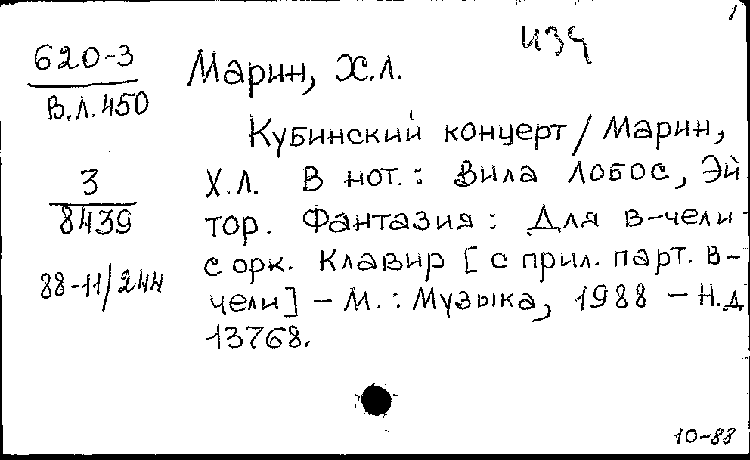 1
изч
620-3
В.Л.450
Марин, Х.Л.
Кубинский концерт / Марин,
Х.Л. В нот.: Вила Лобос, Эй
тор. Фантазия: Для в-чели
с орк. Клавир [с прил. парт. в-
чели] – М.: Музыка, 1988 – Н.д
13768.
3
8439
88-11/244
10-88